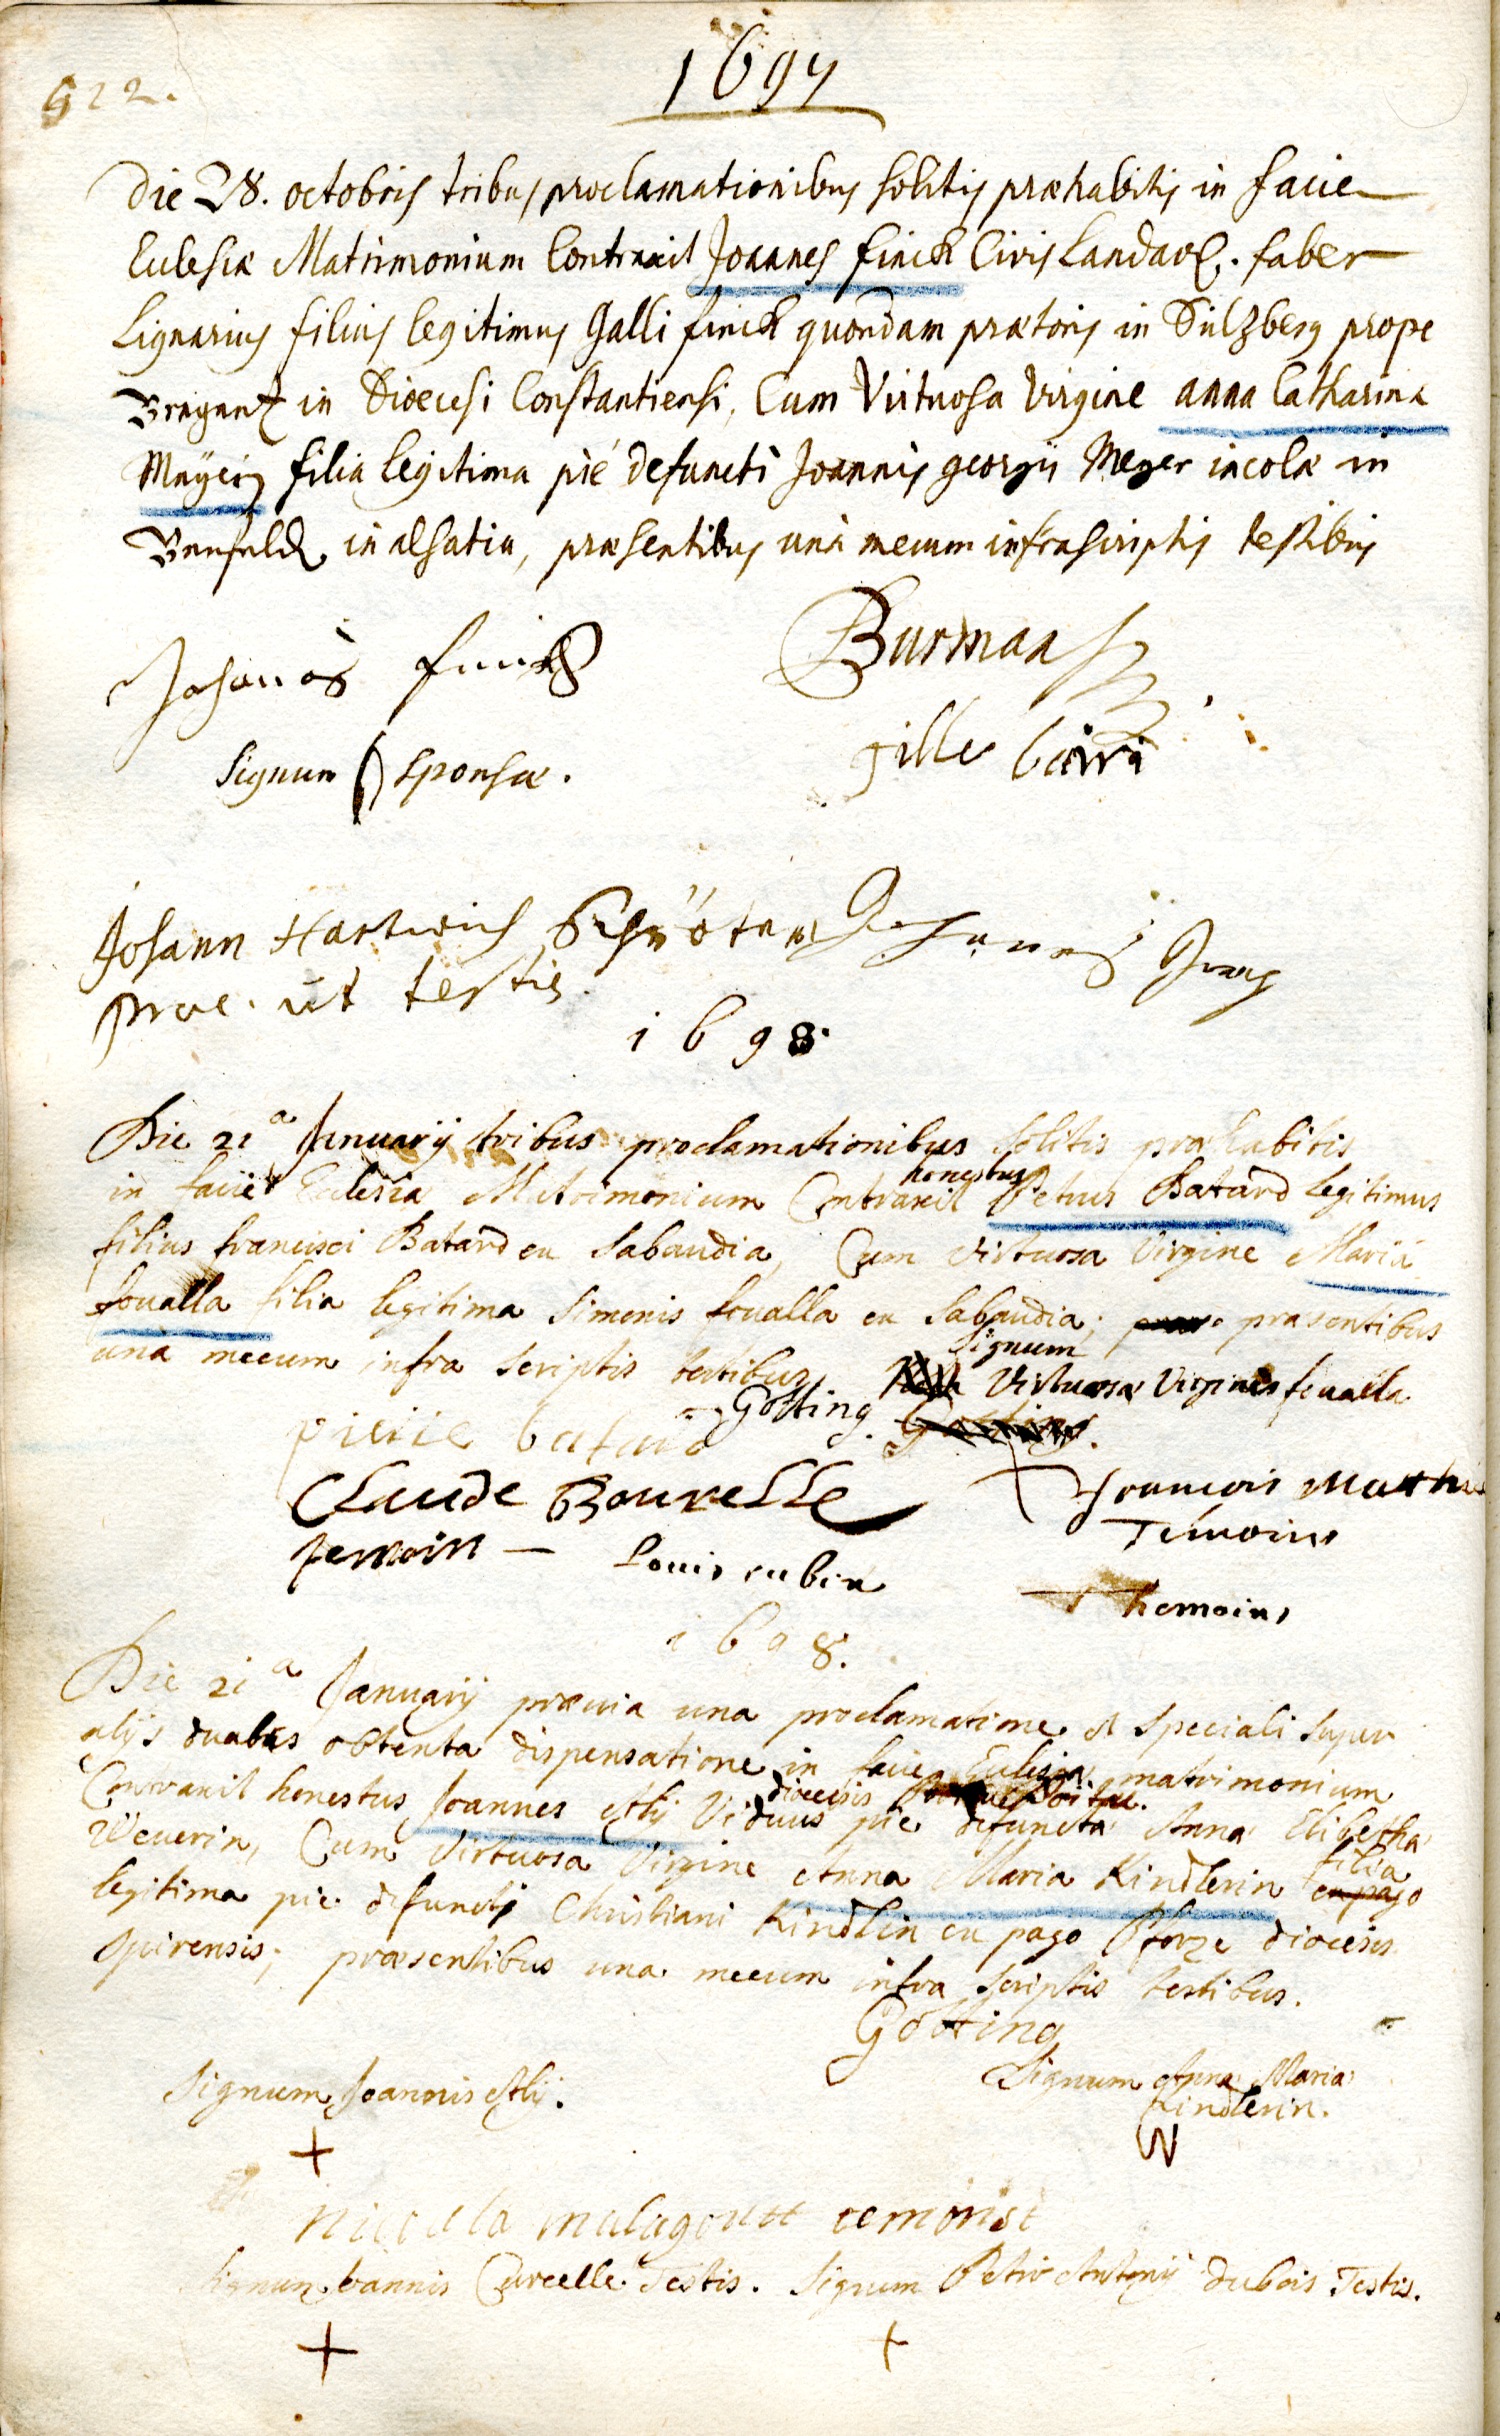 1697
522.
Die 28. octobris tribus proclamationibus solitis præhabitis in facie
Eclesiæ Matrimonium Contraxit Joannes finck Civis Landavɇ. faber
Lignarius filius legitimus Galli finck quondam prætoris in Sulzberg prope
Bregantz in Dioecesi Constantiensi, Cum Virtuosa Virgine anna Catharina
Mayerin filia legitima piè defuncti Joannis georgii Meyer incolæ in
Benfeld in alsatia, præsentibus unà mecum infrascriptis testibus
Johanes finck
Burman
Signum sponsæ.
gille
Johann Hartwich Schröter Johannes Jung
proe. ut testis.
1698.
Die 21a Januarij tribus proclamationibus solitis præhabitis
in faciet Eclesia Matrimonium Contraxit honestus Petrus Batard legitimus
filius francisci Batard ex Sabaudia, Cum virtuosa Virgine Maria
foualla filia legitima Simonis foualla ex Sabaudia; præsentibus
una mecum infra scriptis testibus. Signum Virtuosæ Virginis foualla
Götting.
pierre batard
Claude Bourelle
francois
Temoins
temoin — Louis rubin
themoins
1698.
Die 21a Januarij prævia una proclamatione et speciali super
alijs duabus obtenta dispensatione in facie Eclesiæ matrimonium
Contraxit honestus Joannes Viduus piè defuncta Anna Elibetha
diocesis
Weuerin, Cum Virtuosa Virgine Anna Maria Kindlerin filia
legitima pie defuncti Christiani Kindlin ex pago Pforze diocesis
Spirensis; præsentibus una mecum infra scriptis testibus.
Götting
Signum Joannis
Signum Anna Maria
Kindlerin.
nicola malagoutt temoins
Signum Joannis Curcelle Testis. Signum Petri Antonij dubois Testis.